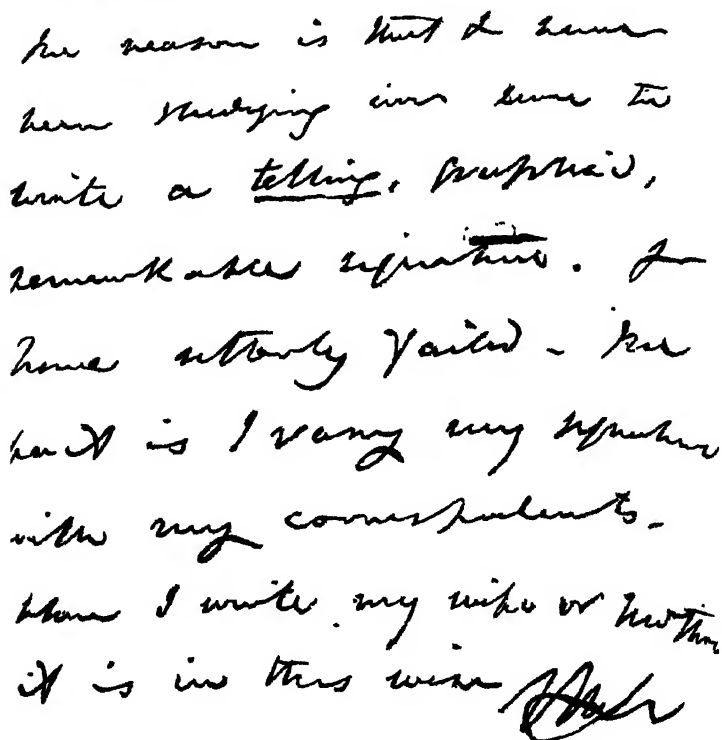 The reason is that I have
been studying ever since to
write a telling, graphic,
remarkable signature. I
have utterly failed - The
fact is I vary my signature
with my correspondents.
When I write my wife or mother
it is in this wise